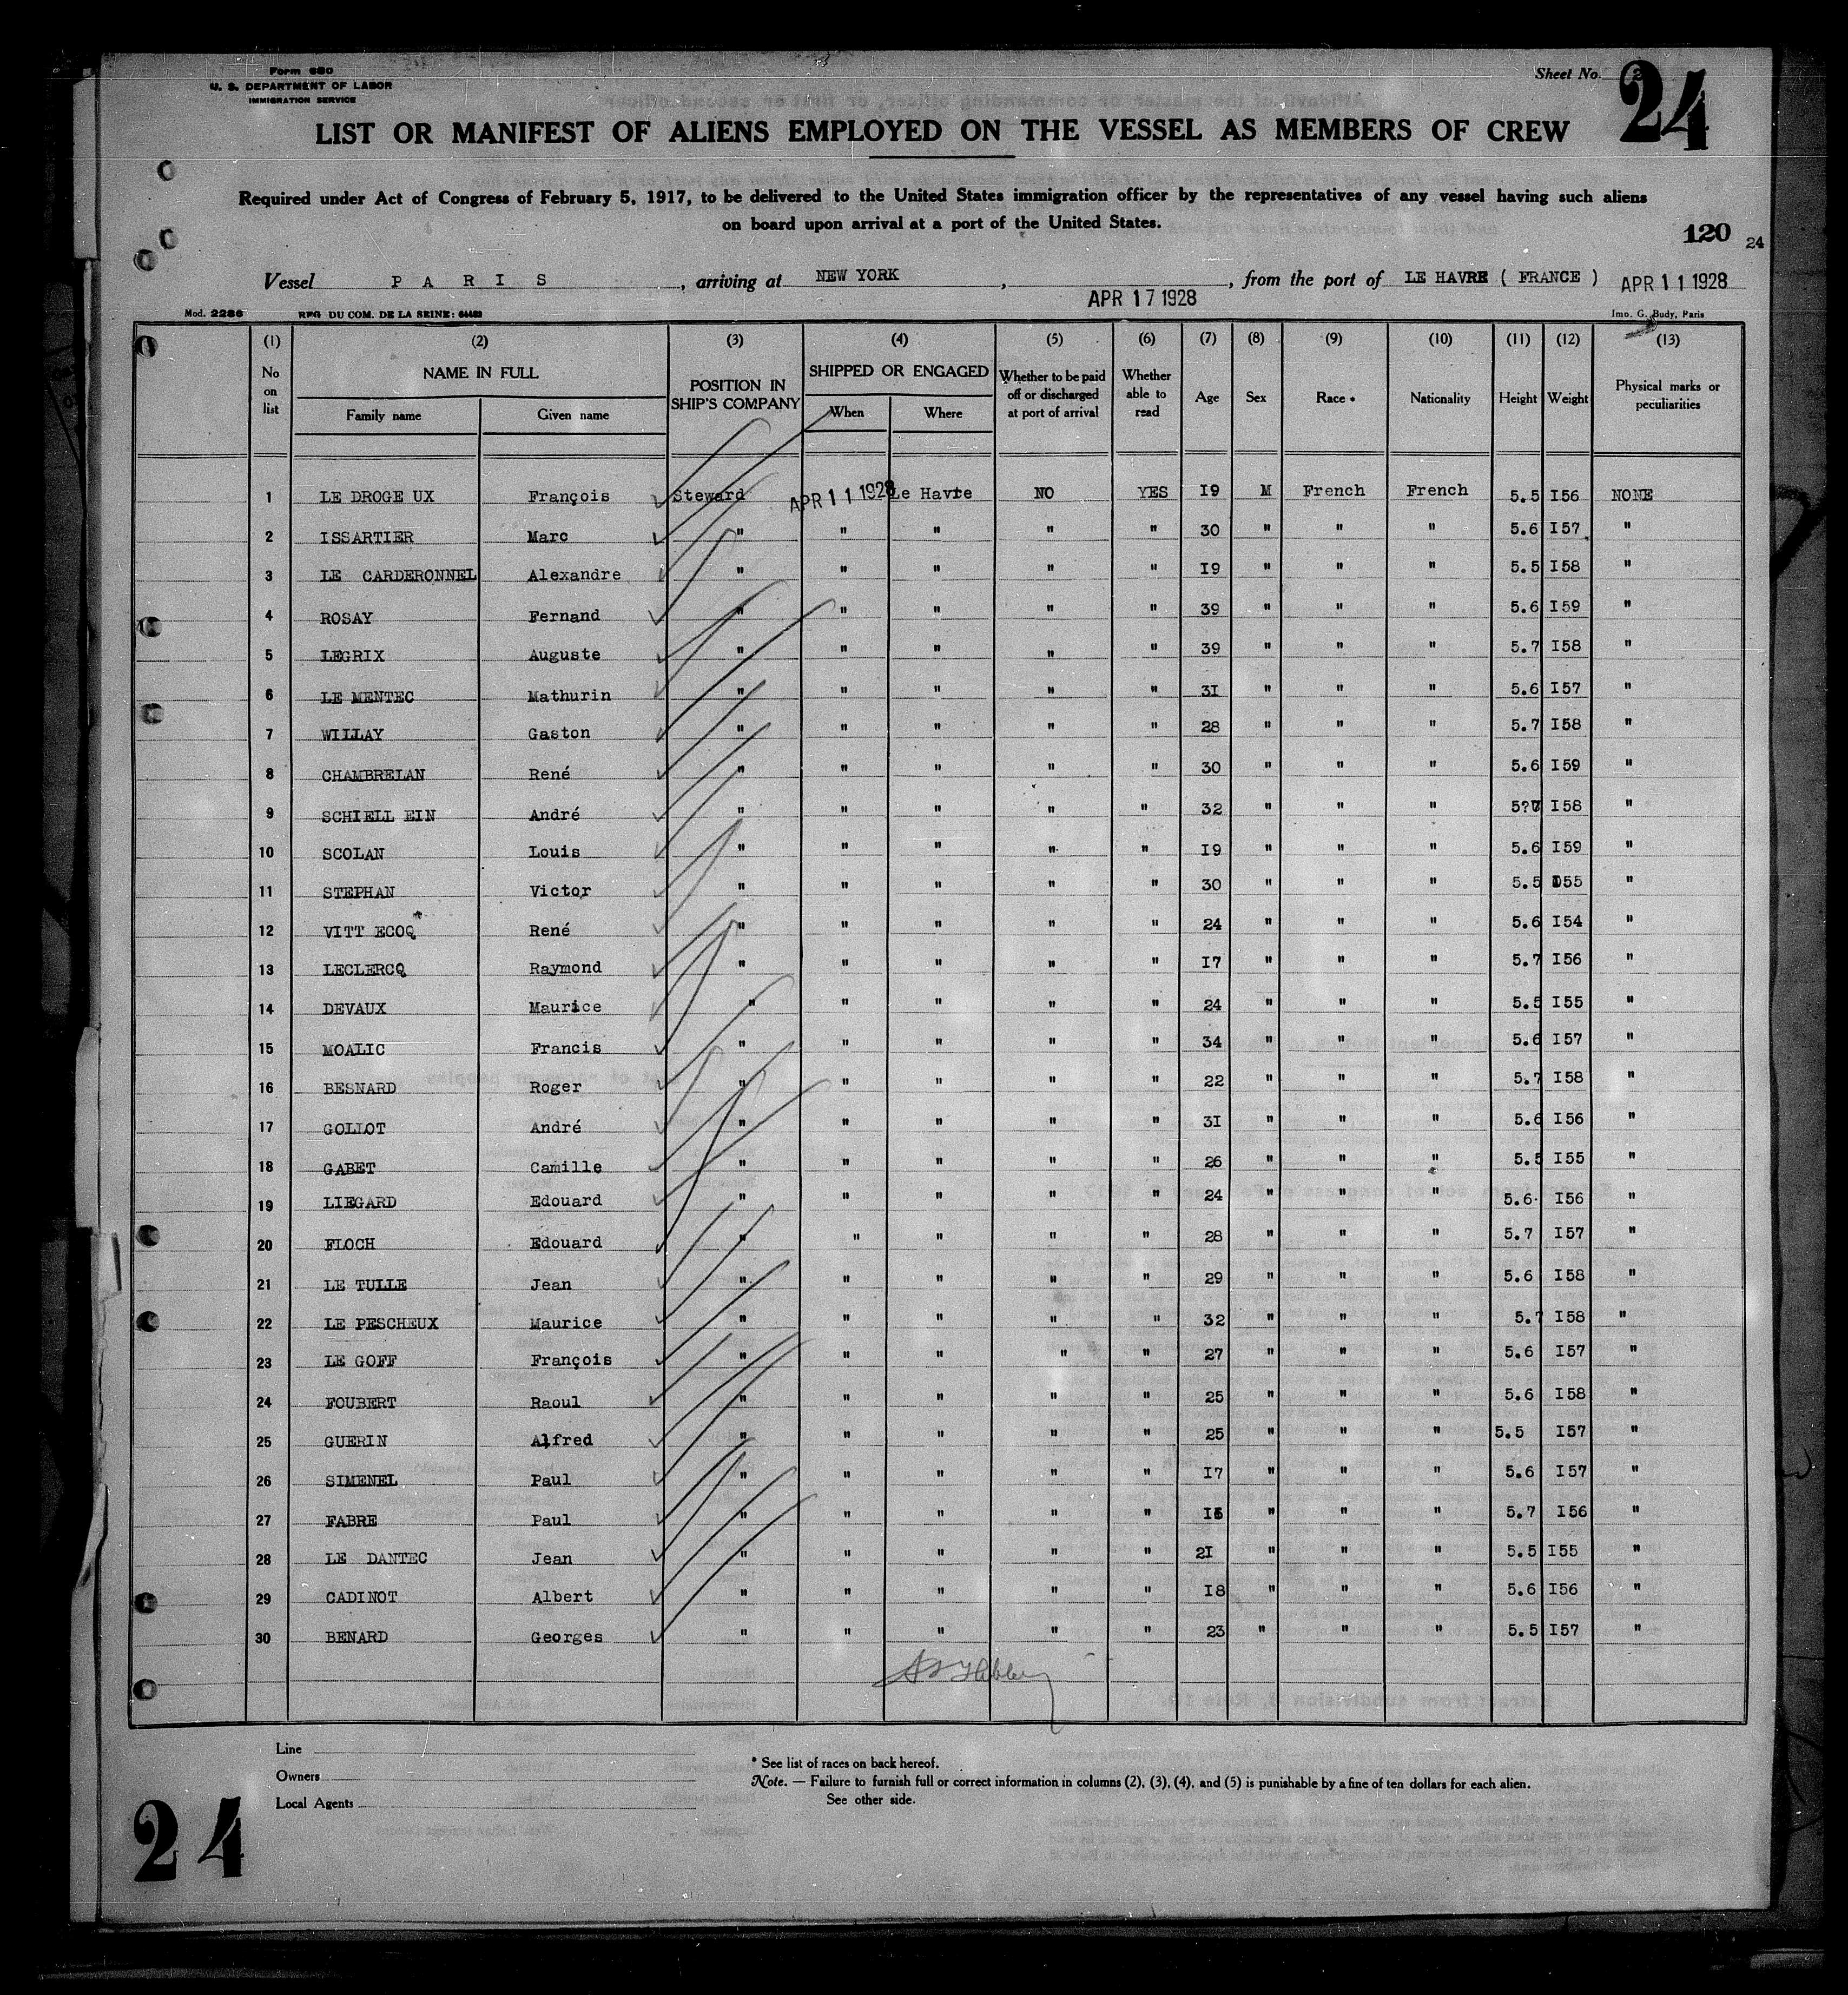 Form 680
U. S. DEPARTMENT OF LABOR
IMMIGRATION SERVICE
Sheet No.
24
LIST OR MANIFEST OF ALIENS EMPLOYED ON THE VESSEL AS MEMBERS OF CREW
Required under Act of Congress of February 5, 1917, to be delivered to the United States immigration officer by the representatives of any vessel having such aliens
on board upon arrival at a port of the United States.
120 24
Vessel P A R I S, arriving at NEW YORK, APR 17 1928, from the port of LE HAVRE ( FRANCE ) APR 11 1928
Mod. 2286 RPG DU COM. DE LA SEINE: Imo. G. Budy, Paris
(1) (2) (3) (4) (5) (6) (7) (8) (9) (10) (11) (12) (13)
No on list NAME IN FULL Family name Given name POSITION IN SHIP'S COMPANY SHIPPED OR ENGAGED When Where Whether to be paid off or discharged at port of arrival Whether able to read Age Sex Race * Nationality Height Weight Physical marks or peculiarities
1 LE DROGE UX François Steward APR 11 1928 Le Havre NO YES I9 M French French 5.5 I56 NONE
2 ISSARTIER Marc " " " " " 30 " " " 5.6 I57 "
3 LE CARDERONNEL Alexandre " " " " " I9 " " " 5.5 I58 "
4 ROSAY Fernand " " " " " 39 " " " 5.6 I59 "
5 LEGRIX Auguste " " " " " 39 " " " 5.7 I58 "
6 LE MENTEC Mathurin " " " " " 3I " " " 5.6 I57 "
7 WILLAY Gaston " " " " " 28 " " " 5.7 I58 "
8 CHAMBRELAN René " " " " " 30 " " " 5.6 I59 "
9 SCHIELL EIN André " " " " " 32 " " " 5?7 I58 "
10 SCOLAN Louis " " " " " I9 " " " 5.6 I59 "
11 STEPHAN Victor " " " " " 30 " " " 5.5 I55 "
12 VITT ECOQ René " " " " " 24 " " " 5.6 I54 "
13 LECLERCQ Raymond " " " " " I7 " " " 5.7 I56 "
14 DEVAUX Maurice " " " " " 24 " " " 5.5 I55 "
15 MOALIC Francis " " " " " 34 " " " 5.6 I57 "
16 BESNARD Roger " " " " " 22 " " " 5.7 I58 "
17 GOLLOT André " " " " " 3I " " " 5.6 I56 "
18 GABET Camille " " " " " 26 " " " 5.5 I55 "
19 LIEGARD Edouard " " " " " 24 " " " 5.6 I56 "
20 FLOCH Edouard " " " " " 28 " " " 5.7 I57 "
21 LE TULLE Jean " " " " " 29 " " " 5.6 I58 "
22 LE PESCHEUX Maurice " " " " " 32 " " " 5.7 I58 "
23 LE GOFF François " " " " " 27 " " " 5.6 I57 "
24 FOUBERT Raoul " " " " " 25 " " " 5.6 I58 "
25 GUERIN Alfred " " " " " 25 " " " 5.5 I57 "
26 SIMENEL Paul " " " " " I7 " " " 5.6 I57 "
27 FABRE Paul " " " " " " " " 5.7 I56 "
28 LE DANTEC Jean " " " " " 2I " " " 5.5 I55 "
29 CADINOT Albert " " " " " I8 " " " 5.6 I56 "
30 BENARD Georges " " " " " 23 " " " 5.5 I57 "
Line
Owners
Local Agents
* See list of races on back hereof.
Note. — Failure to furnish full or correct information in columns (2), (3), (4), and (5) is punishable by a fine of ten dollars for each alien.
See other side.
24